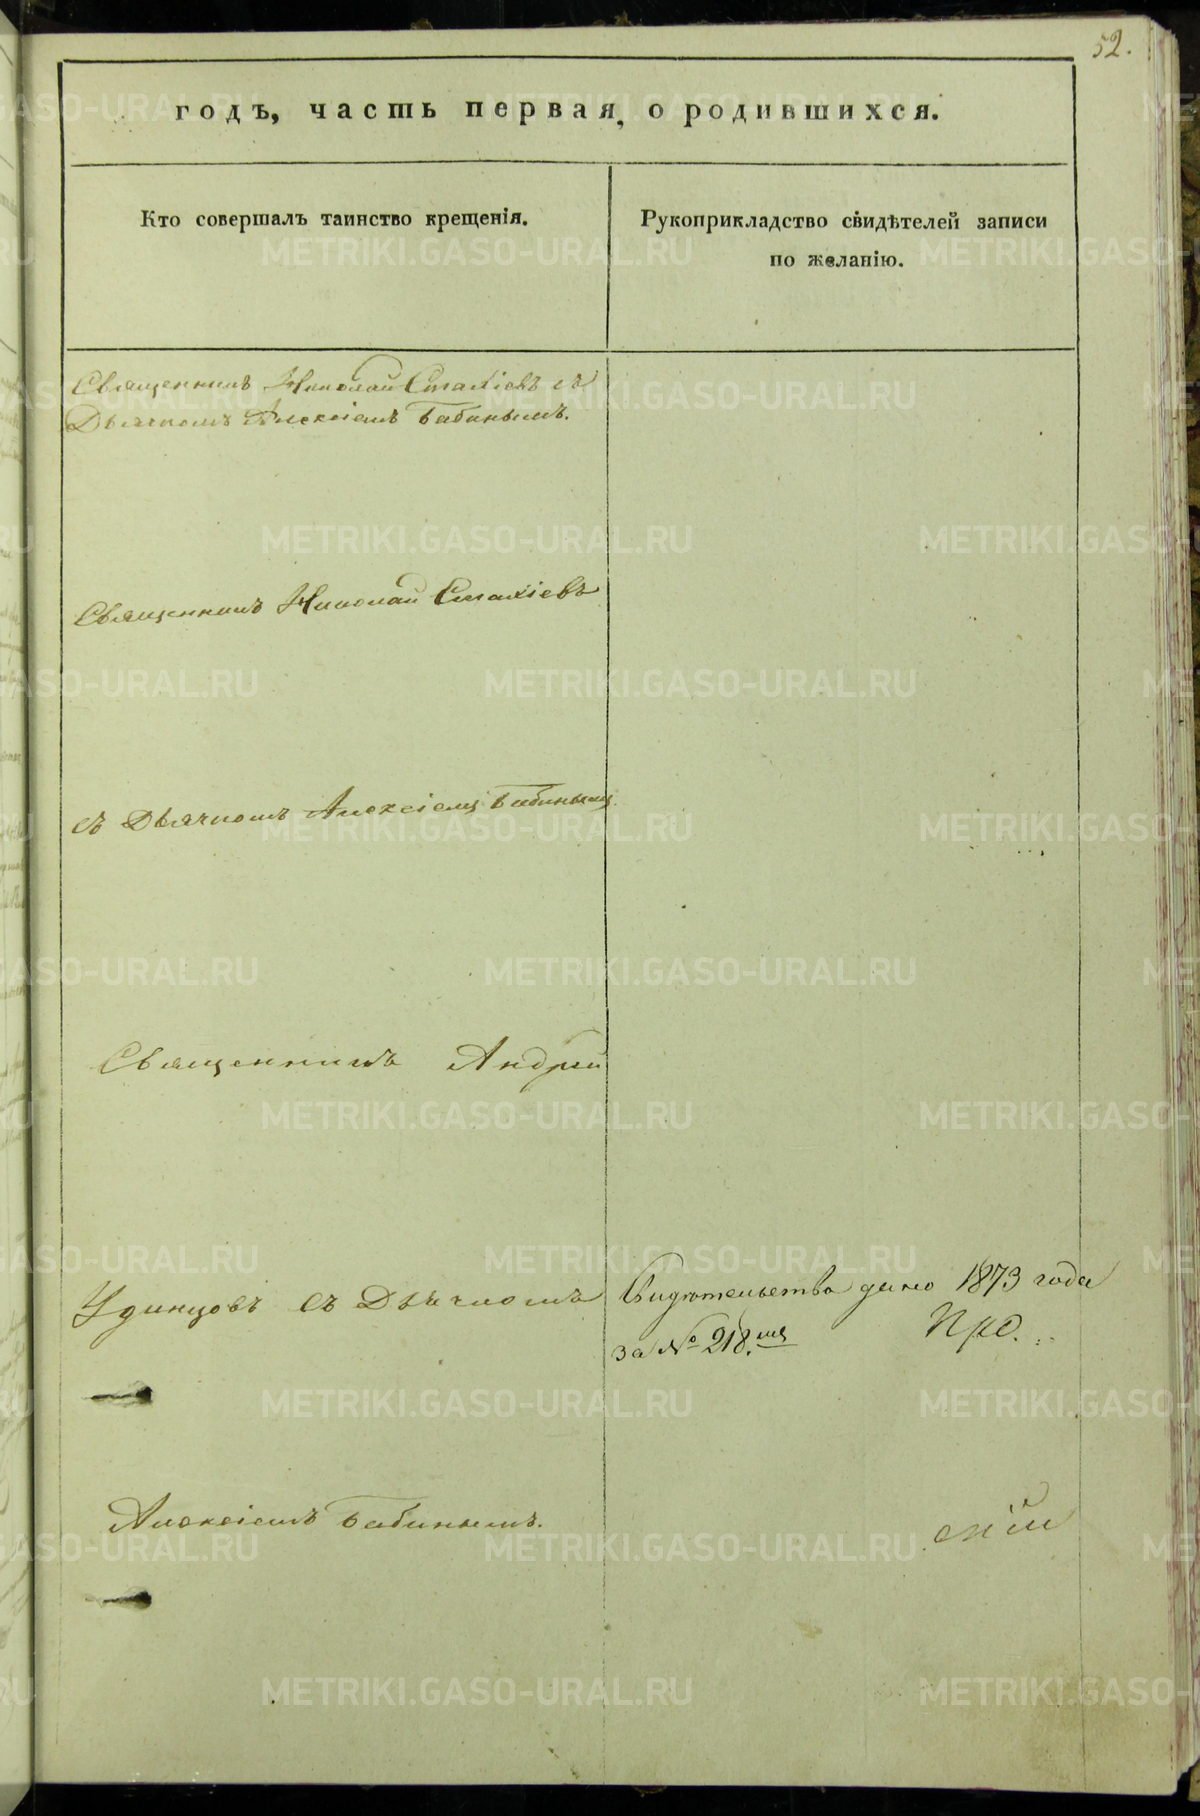 52.
годъ, часть первая, о родившихся.
Кто совершалъ таинство крещенія.
Рукоприкладство свидѣтелей записи
по желанію.
Священникъ Николай Стахіевъ съ
Дьячкомъ Алексіемъ Бабинымъ.
Священникъ Николай Стахіевъ
съ Дьячкомъ Алексіемъ Бабинымъ
Священникъ Андрей
Удинцовъ съ Дьячкомъ
Свидѣтельство дано 1873 года
за № 218.
Алексіемъ Бабинымъ.
METRIKI.GASO-URAL.RU